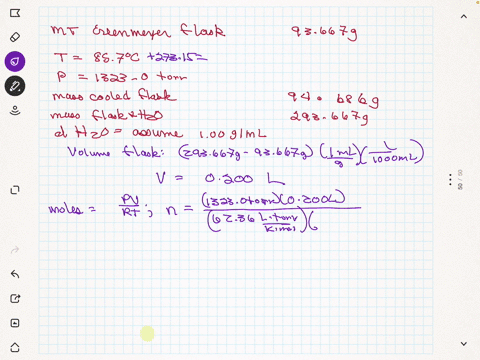 MT Erenmeyer flask 93.667g
T = 88.7°C +273.15=
P = 1323.0 torr
mass cooled flask 94.686g
mass flask+H2O 293.667g
d H2O = assume 1.00 g/mL
Volume flask: (293.667g - 93.667g) (1mL/g)(L/1000mL)
V = 0.200 L
moles = PV/RT ; n = (1323.0torr)(0.200L)/(62.36 L·torr/K·mol)(